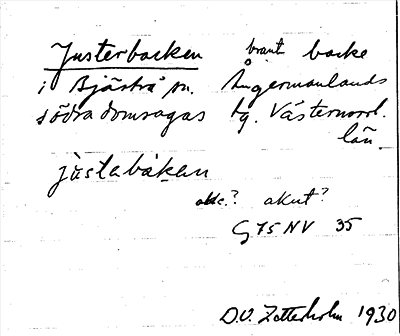 Justerbacken brant backe
i Bjärtrå sn. Ångermanlands
södra domsagas tg. Västernorrl.
län.
jùstabàkan
akc.? akut?
G 75 NV 35
D.O. Zetterholm 1930